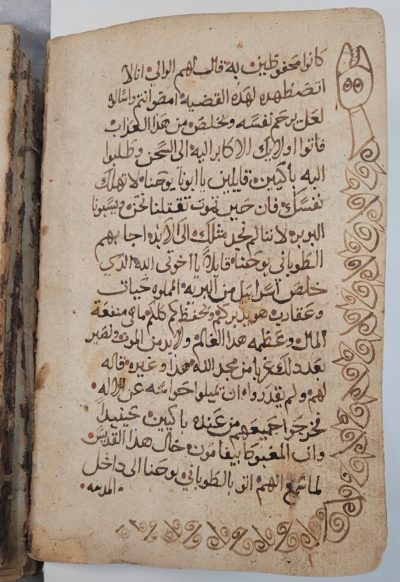 كانوا محفوظين به قال لهم الوالي انا لا
لهذه القضيه امضوا انتم واسالوه
لعل يرحم نفسه ويخلص من هذا العذاب
فاتوا اولايك الاكابر اليه الى السجن وطلبوا
اليه باكين قايلين يا ابونا يوحنا لا تهلك
نفسك فان حين تموت تقتلنا نحن
لاننا لم نجد مثلك الى الابد اجابهم
الطوباني يوحنا قايلا يا اخوتي الله الذي
خلص اسراييل من البريه حيات
وعقارب هو يدبركم ويحفظكم كلكم ما هي منفعة
المال وعظمه هذا العالم
بعد ذلك غريبا من مجد الله هذا وغيره قاله
لهم ولم يقدروا ان يميلوا حواسه عن الاله
فخرجوا جميعهم من عنده باكين حينيدا
وانبا المغبوط بيفامون خال هذا القديس
لما سمع انهم اتوا بالطوباني يوحنا الى داخل
المدينه